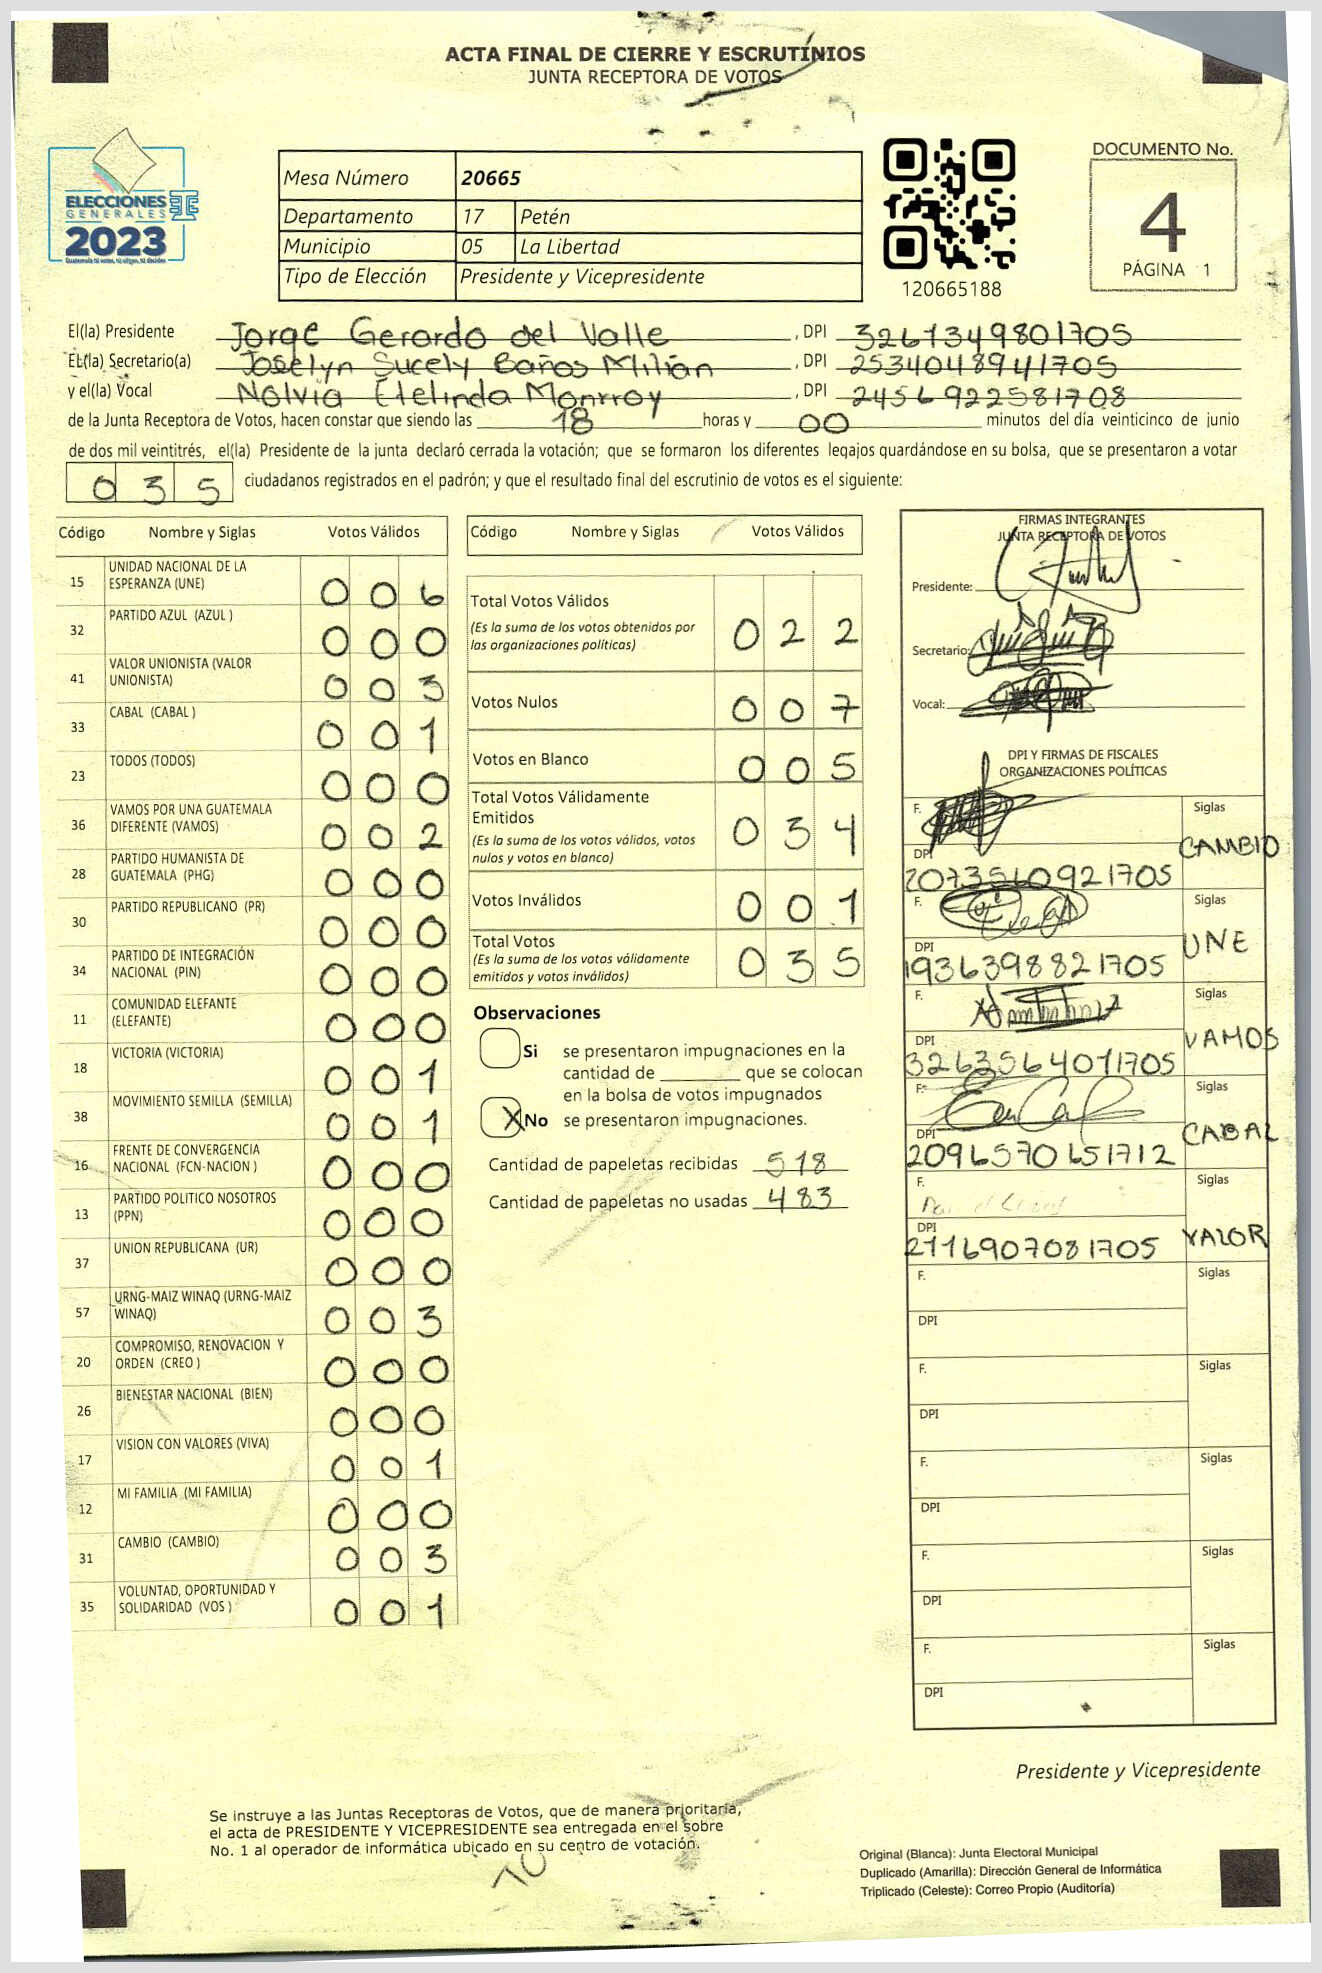 ACTA FINAL DE CIERRE Y ESCRUTINIOS
JUNTA RECEPTORA DE VOTOS
ELECCIONES
GENERALES
2023
Guatemala tú votas, tú eliges, tú decides
Mesa Número 20665
Departamento 17 Petén
Municipio 05 La Libertad
Tipo de Elección Presidente y Vicepresidente
120665188
DOCUMENTO No.
4
PÁGINA 1
El(la) Presidente Jorge Gerardo del Valle , DPI 3261349801705
El(la) Secretario(a) Joselyn Sucely Baños Milián , DPI 2534048941705
y el(la) Vocal Nolvia Etelinda Monrroy , DPI 2456922581708
de la Junta Receptora de Votos, hacen constar que siendo las 18 horas y 00 minutos del día veinticinco de junio
de dos mil veintitrés, el(la) Presidente de la junta declaró cerrada la votación; que se formaron los diferentes legajos guardándose en su bolsa, que se presentaron a votar
035 ciudadanos registrados en el padrón; y que el resultado final del escrutinio de votos es el siguiente:
Código Nombre y Siglas Votos Válidos
15 UNIDAD NACIONAL DE LA
ESPERANZA (UNE) 006
32 PARTIDO AZUL (AZUL ) 000
41 VALOR UNIONISTA (VALOR
UNIONISTA) 003
33 CABAL (CABAL ) 001
23 TODOS (TODOS) 000
36 VAMOS POR UNA GUATEMALA
DIFERENTE (VAMOS) 002
28 PARTIDO HUMANISTA DE
GUATEMALA (PHG) 000
30 PARTIDO REPUBLICANO (PR) 000
34 PARTIDO DE INTEGRACIÓN
NACIONAL (PIN) 000
11 COMUNIDAD ELEFANTE
(ELEFANTE) 000
18 VICTORIA (VICTORIA) 001
38 MOVIMIENTO SEMILLA (SEMILLA) 001
16 FRENTE DE CONVERGENCIA
NACIONAL (FCN-NACION ) 000
13 PARTIDO POLITICO NOSOTROS
(PPN) 000
37 UNION REPUBLICANA (UR) 000
57 URNG-MAIZ WINAQ (URNG-MAIZ
WINAQ) 003
20 COMPROMISO, RENOVACION Y
ORDEN (CREO ) 000
26 BIENESTAR NACIONAL (BIEN) 000
17 VISION CON VALORES (VIVA) 001
12 MI FAMILIA (MI FAMILIA) 000
31 CAMBIO (CAMBIO) 003
35 VOLUNTAD, OPORTUNIDAD Y
SOLIDARIDAD (VOS ) 001
Código Nombre y Siglas Votos Válidos
Total Votos Válidos 022
(Es la suma de los votos obtenidos por
las organizaciones políticas)
Votos Nulos 007
Votos en Blanco 005
Total Votos Válidamente
Emitidos 034
(Es la suma de los votos válidos, votos
nulos y votos en blanco)
Votos Inválidos 001
Total Votos 035
(Es la suma de los votos válidamente
emitidos y votos inválidos)
Observaciones
Si se presentaron impugnaciones en la
cantidad de ________ que se colocan
en la bolsa de votos impugnados
X No se presentaron impugnaciones.
Cantidad de papeletas recibidas 518
Cantidad de papeletas no usadas 483
FIRMAS INTEGRANTES
JUNTA RECEPTORA DE VOTOS
Presidente:
Secretario:
Vocal:
DPI Y FIRMAS DE FISCALES
ORGANIZACIONES POLÍTICAS
F. Siglas
CAMBIO
DPI
2073560921705
F. Siglas
UNE
DPI
1936398821705
F. Siglas
VAMOS
DPI
3263564011705
F. Siglas
CABAL
DPI
2096570651712
F. Siglas
VALOR
DPI
2116907081705
F. Siglas
DPI
F. Siglas
DPI
F. Siglas
DPI
F. Siglas
DPI
F. Siglas
DPI
Presidente y Vicepresidente
Se instruye a las Juntas Receptoras de Votos, que de manera prioritaria,
el acta de PRESIDENTE Y VICEPRESIDENTE sea entregada en el sobre
No. 1 al operador de informática ubicado en su centro de votación.
Original (Blanca): Junta Electoral Municipal
Duplicado (Amarilla): Dirección General de Informática
Triplicado (Celeste): Correo Propio (Auditoría)